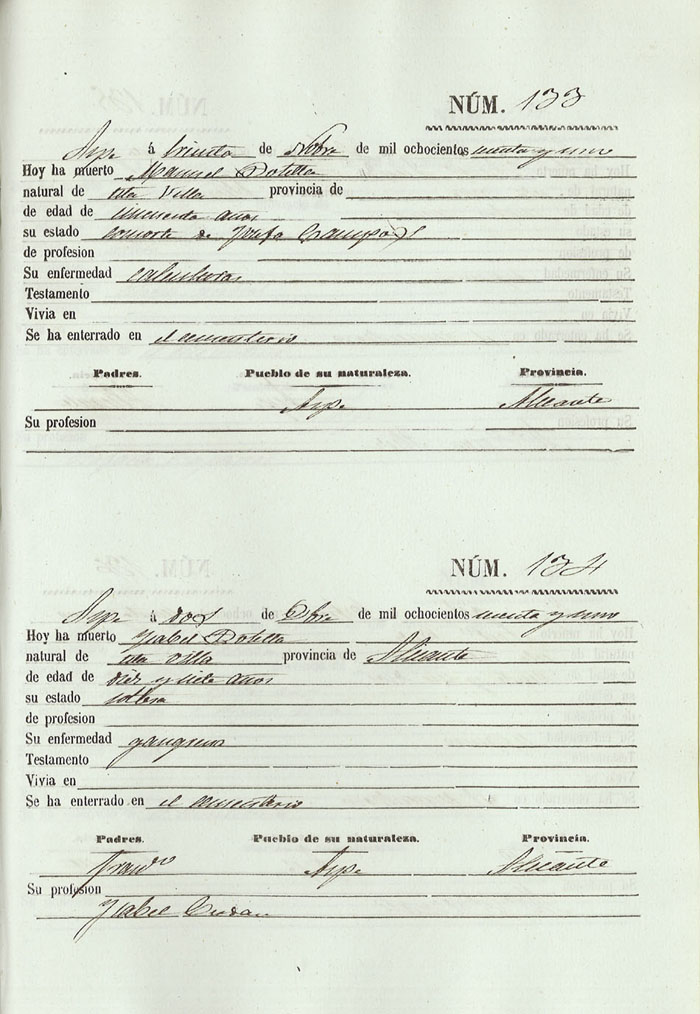 NÚM. 133
Aspe á treinta de Nobre de mil ochocientos cuenta y uno
Hoy ha muerto Manuel Botella
natural de esta Villa provincia de
de edad de cincuenta años
su estado consorte de Josefa
de profesion
Su enfermedad calenturas
Testamento
Vivia en
Se ha enterrado en el cementerio
Padres. Pueblo de su naturaleza. Provincia.
Aspe Alicante
Su profesion
NÚM. 134
Aspe á dos de Dbre de mil ochocientos cuenta y uno
Hoy ha muerto Ysabel Botella
natural de esta villa provincia de Alicante
de edad de diez y siete años
su estado soltera
de profesion
Su enfermedad gangrena
Testamento
Vivia en
Se ha enterrado en el cementerio
Padres. Pueblo de su naturaleza. Provincia.
Franco Aspe Alicante
Su profesion
Ysabel